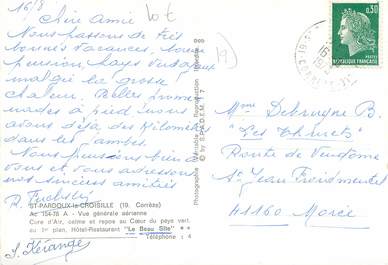 16/8
Chère Amie
Nous passons de très
bonnes vacances, bonne
pension, pays verdoyant
malgré la grosse
chaleur. Belles prome
nades à pied nous
avons déjà des kilomètres
dans les jambes.
Nous pensons bien à
vous et vous adressons
nos sincères amitiés
ST-PARDOUX-la-CROISILLE (19. Corrèze)
Ac 154-78 A - Vue générale aérienne
Cure d'Air, calme et repos au Cœur du pays vert
au 1er plan, Hôtel-Restaurant "Le Beau Site" **
Téléphone : 4
Photographie véritable - Reproduction interdite
© by S.P.A.D.E.M.
(19)
0,30
REPUBLIQUE FRANCAISE
Mme Debruyne B.
"Les Thurets"
Route de Vendôme
St Jean Froidmentel
41160 Morée